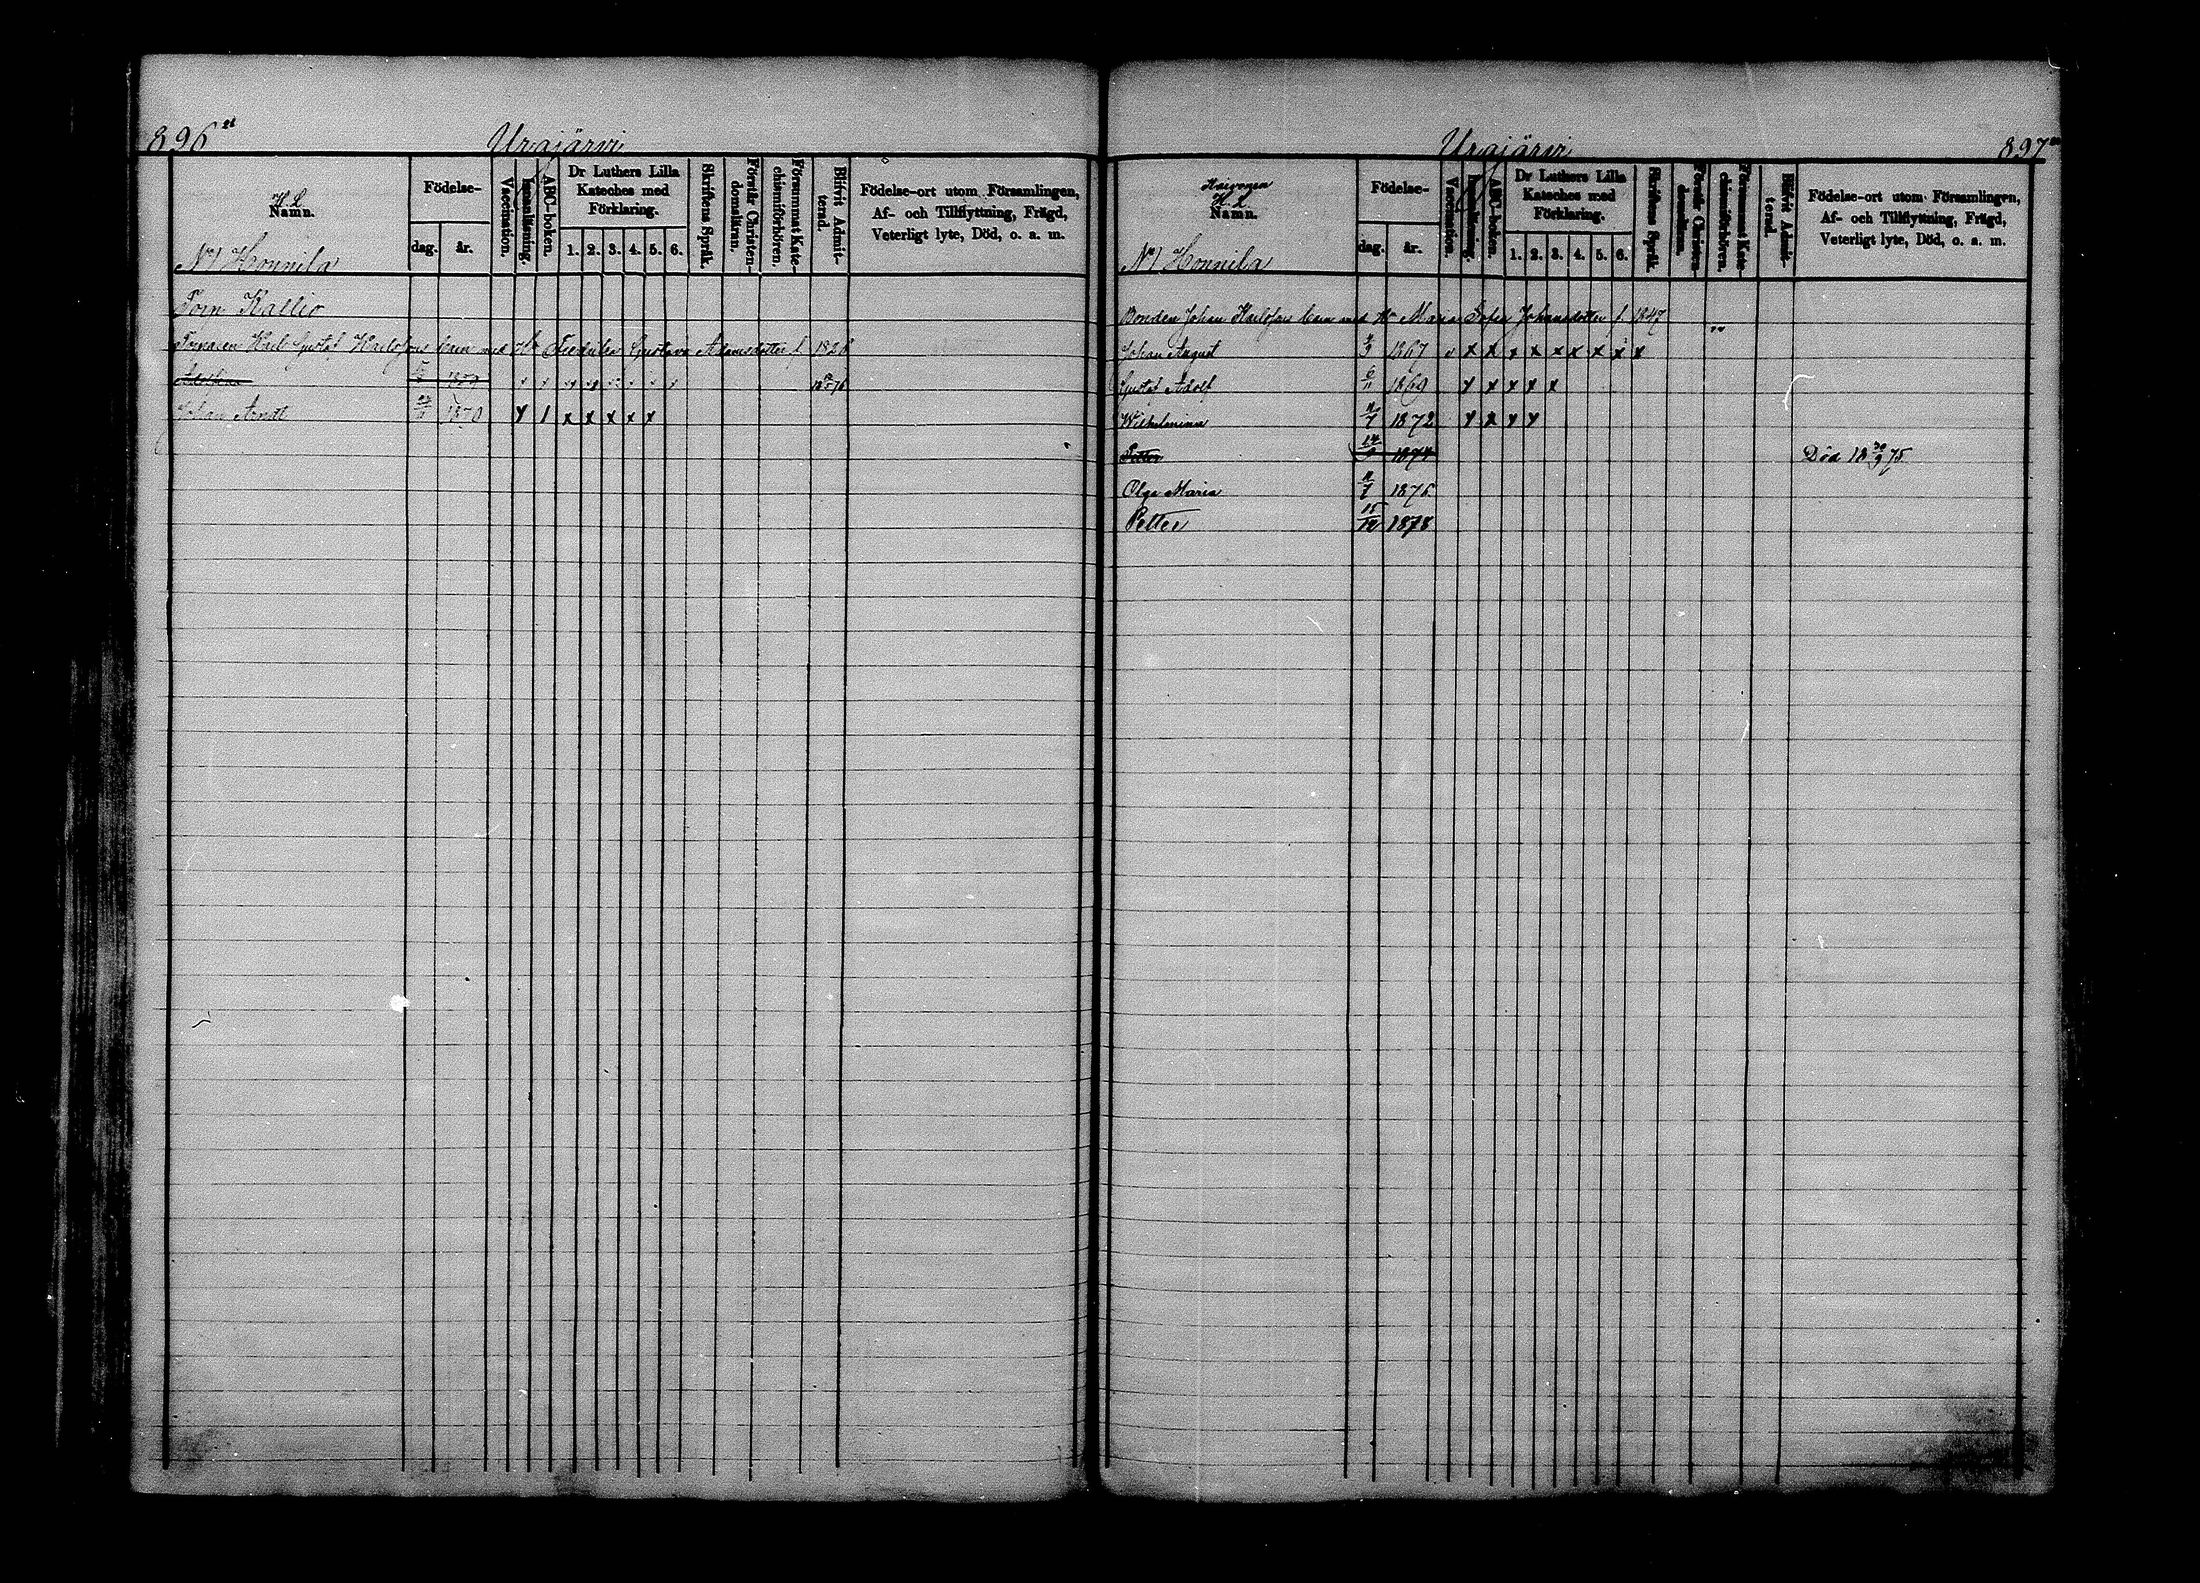 896
Urajärvi
H. L.
Namn.
Födelse-
dag. år.
Vaccination.
Innanläsning.
ABC-boken.
Dr Luthers Lilla Kateches med Förklaring.
1. 2. 3. 4. 5. 6.
Skriftens Språk.
Förstår Christendomsläran.
Försummat Katechismiförhören.
Blifvit Admitterad.
Födelse-ort utom Församlingen,
Af- och Tillflyttning, Frägd,
Veterligt lyte, Död, o. a. m.
Torp Kallio
Karl Gustaf Karlsson barn med Gustava Adamsdotter f. 1826
Johan 1870 x x x x x
897
Urajärvi
H. L.
Namn.
Födelse-
dag. år.
Vaccination.
Innanläsning.
ABC-boken.
Dr Luthers Lilla Kateches med Förklaring.
1. 2. 3. 4. 5. 6.
Skriftens Språk.
Förstår Christendomsläran.
Försummat Katechismiförhören.
Blifvit Admitterad.
Födelse-ort utom Församlingen,
Af- och Tillflyttning, Frägd,
Veterligt lyte, Död, o. a. m.
N:o 1 Honnila
Bonden Johan Karlsson barn med Maria Sofia Johansdotter f. 1847
Johan August 1867 x x x x x x x x x
Gustaf Adolf 6/11 1869 x x x x x
Wilhelmina 1872 x x x x
Petter 1874 Död 18 30/9 75
Olga Maria 1876
Petter 15/12 1878